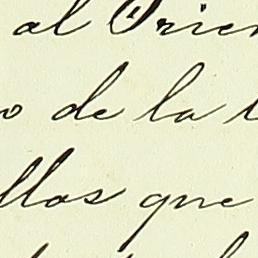 al Orien
o de la t
llas que